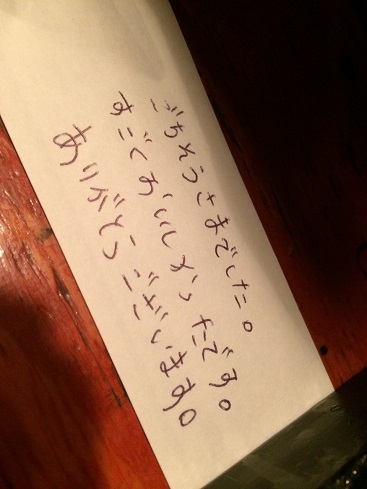 ごちそうさまでした。
すごくおいしかったです。
ありがとうございます。